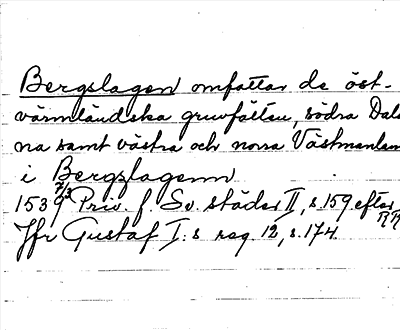 Bergslagen omfattar de öst-
värmländska gruvfälten, södra Dala
na samt västra och norra Västmanlan
i Bergzlagenn
1539 7/3 Priv. f. Sv. städer II, s. 159 efter RR
Jfr Gustaf I:s reg. 12, s. 174.